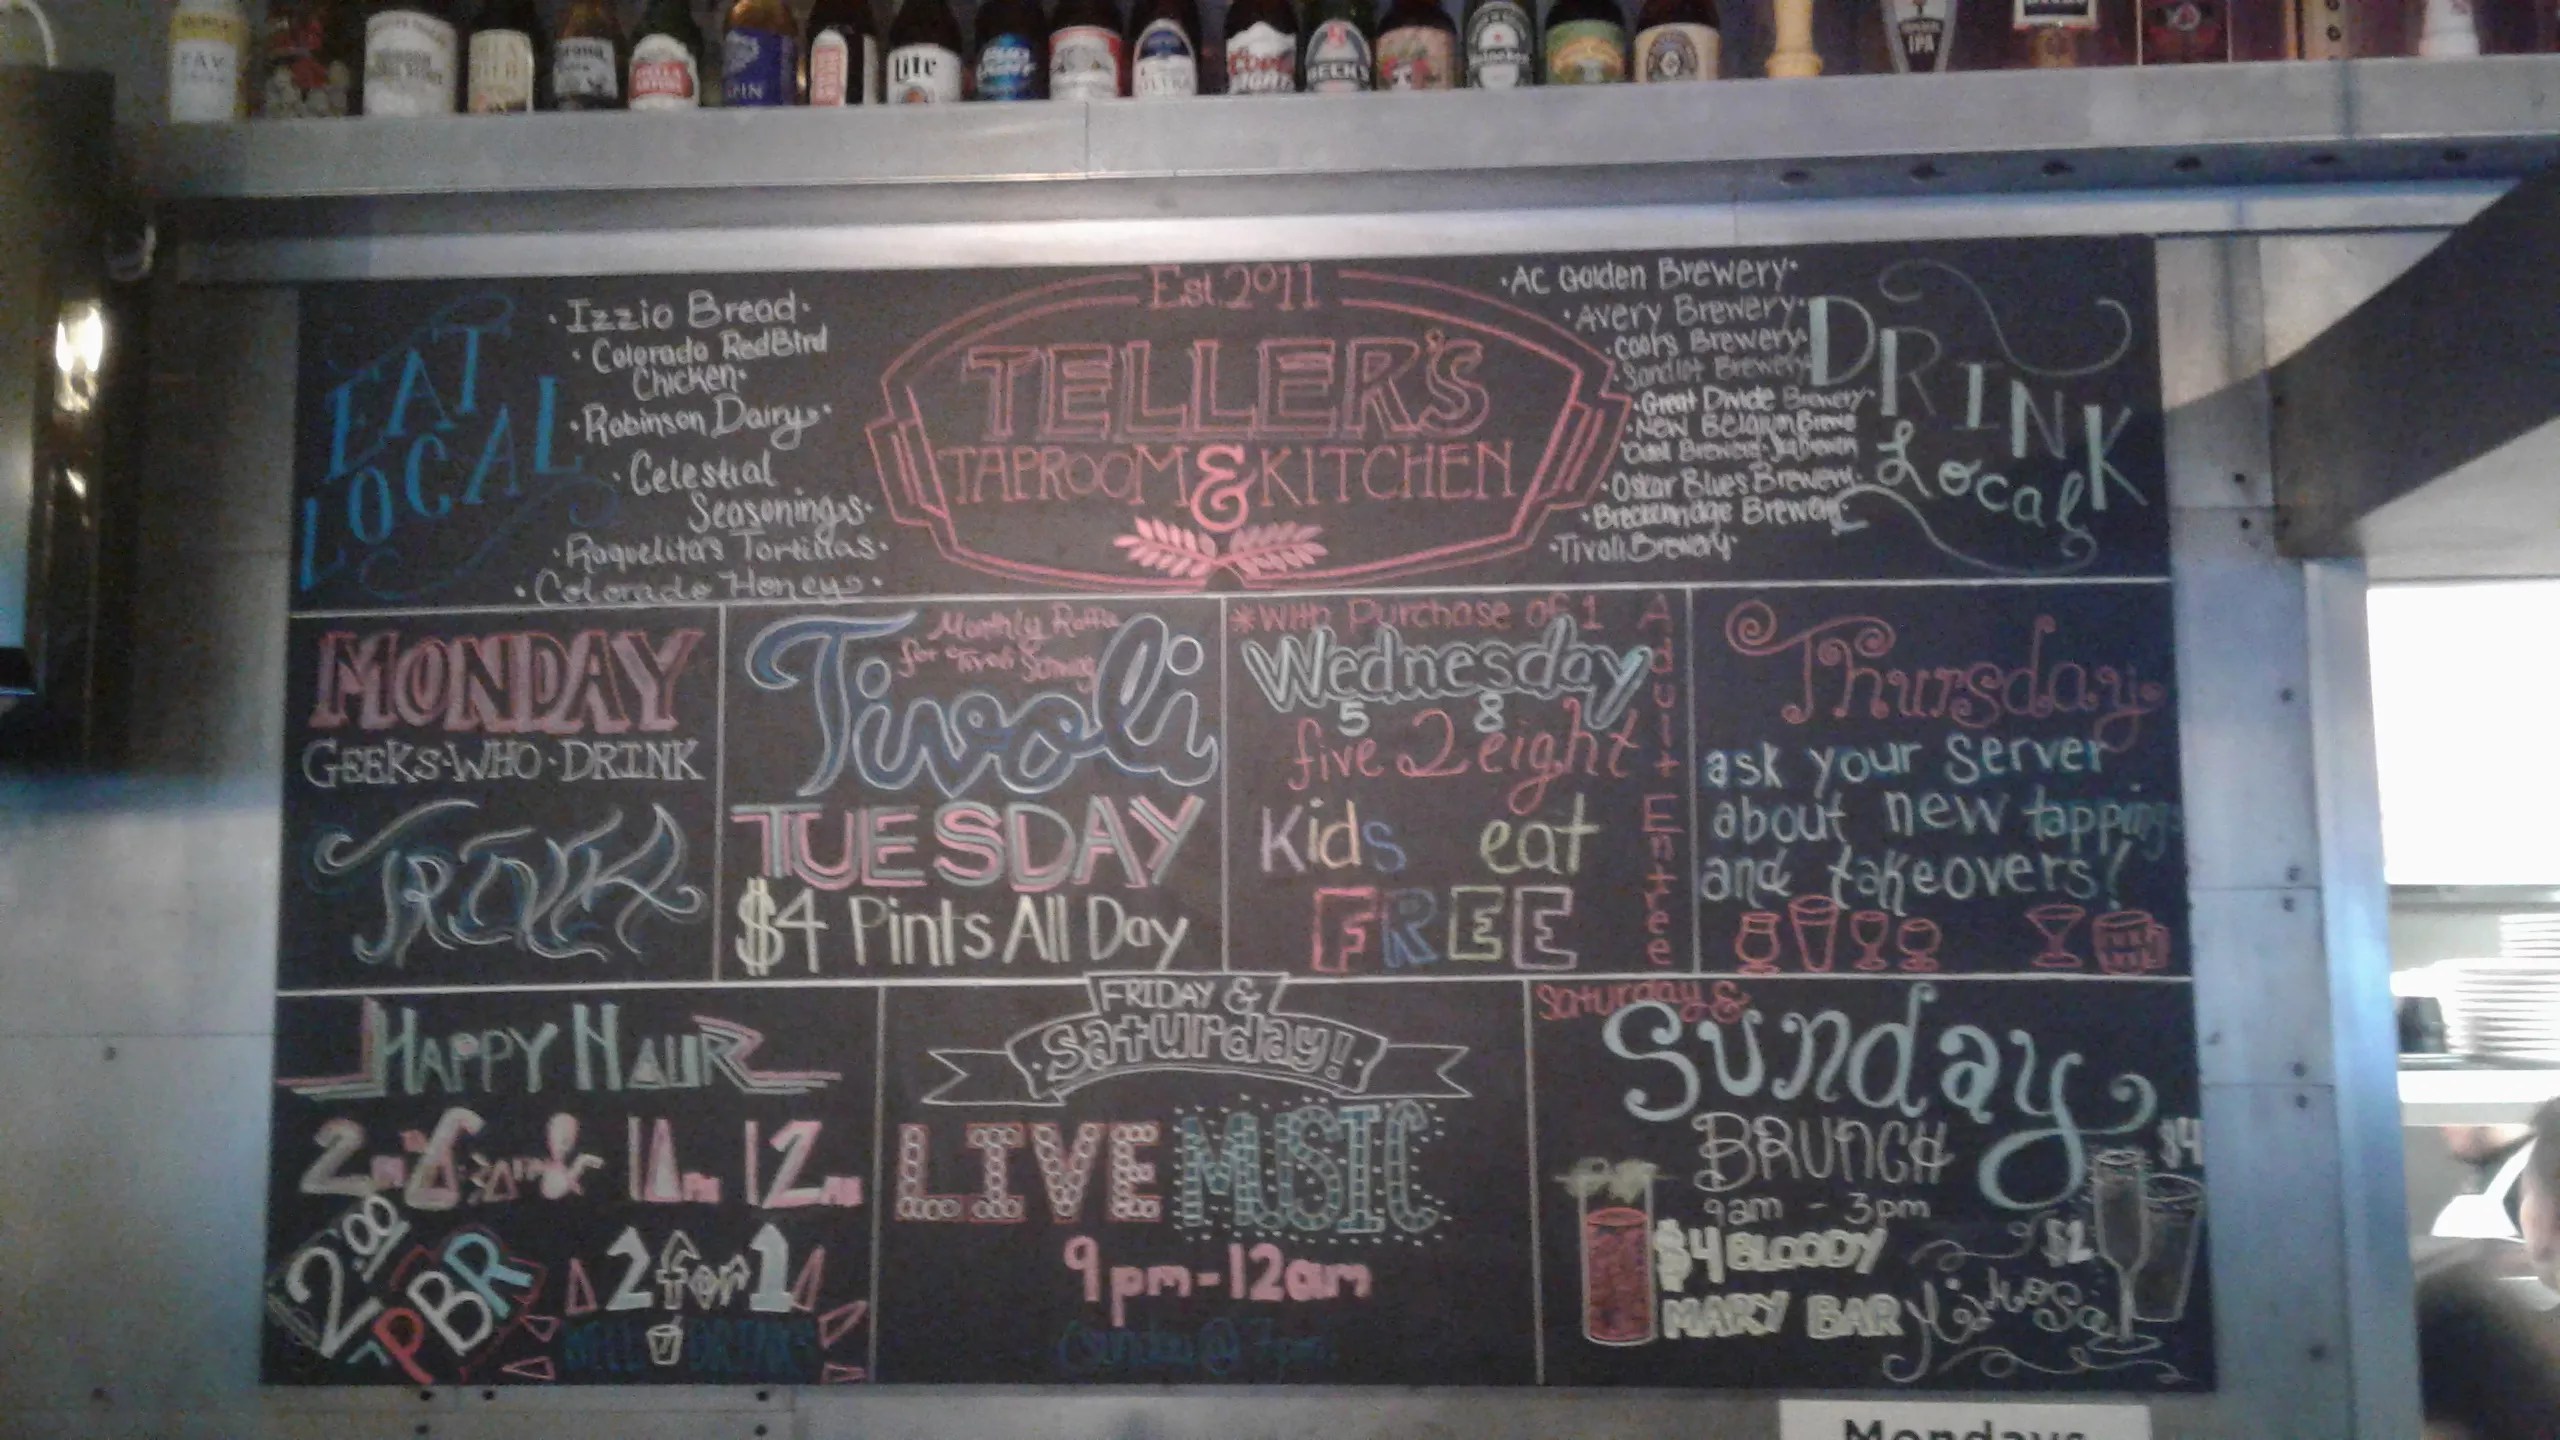 Lite
BUD
LIGHT
ULTRA
Coors
LIGHT
BECK'S
Heineken
IPA
Est. 2011
TELLER'S
TAPROOM & KITCHEN
EAT
LOCAL
·Izzio Bread·
·Colorado RedBird
Chicken·
·Robinson Dairy·
·Celestial
Seasonings·
·Raquelita's Tortillas·
·Colorado Honey·
·AC Golden Brewery·
·Avery Brewery·
·Coors Brewery·
·Sandlot Brewery
·Great Divide Brewery·
·New Belgium
·Oskar Blues Brewery·
·Breckenridge Brewery
·Tivoli Brewery·
DRINK
Local
MONDAY
GEEKS·WHO·DRINK
Monthly Raffle
for Tivoli
Tivoli
TUESDAY
$4 Pints All Day
*With Purchase of 1
Adult Entree
Wednesday
5 8
five 2 eight
Kids eat
FREE
Thursday
ask your server
about new tappings
and takeovers!
HAPPY HOUR
2.00
PBR
2 for 1
WELL DRINKS
FRIDAY &
Saturday!
LIVE MUSIC
9pm-12am
(Sunday @ 7pm)
Saturday &
Sunday
BRUNCH
9am - 3pm
$4 BLOODY
MARY BAR
$2
Mimosa
$4
Mondays